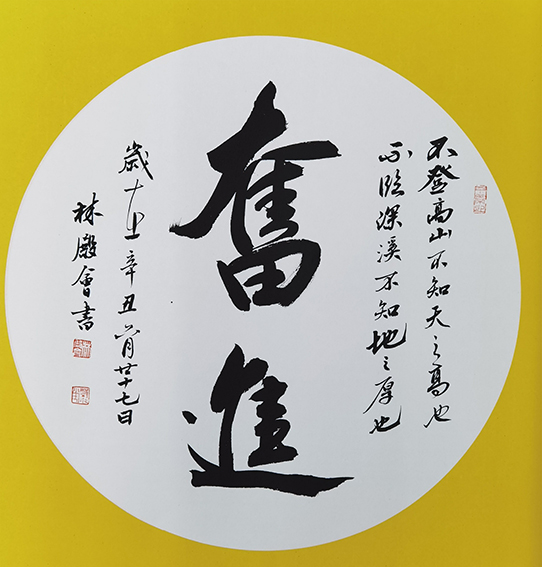 不登高山不知天之高也
不临深溪不知地之厚也
奮進
歲辛丑月廿十七日
林殿會書